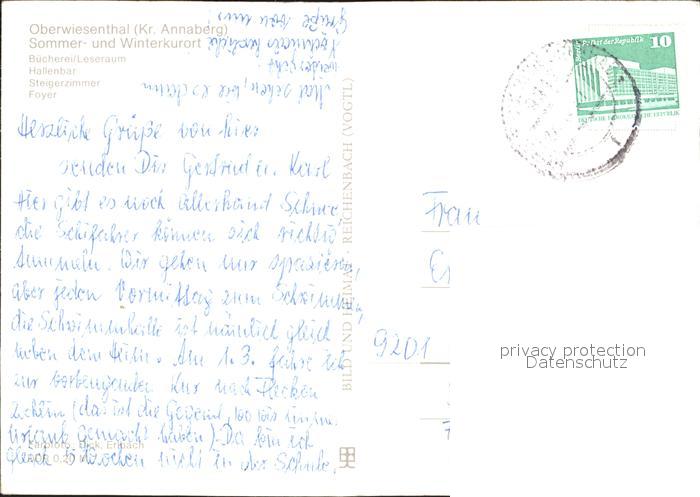 Oberwiesenthal (Kr. Annaberg)
Sommer- und Winterkurort
Bücherei/Leseraum
Hallenbar
Steigerzimmer
Foyer
Herzliche Grüße von hier
senden Dir Gertrud u. Karl
Hier gibt es noch allerhand Schnee
die Schifahrer können sich richtig
tummeln. Wir gehen nur spazieren,
aber jeden Vormittag zum Schwimmen,
die Schwimmhalle ist nämlich gleich
neben dem Heim. Am 1.3. fahre ich
zur vorbeugenden Kur nach
(das ist die Gegend, wo wir immer
Urlaub gemacht haben). Da bin ich
gleich 5 Wochen nicht in der Schule.
Mal sehen, wie es dann
weitergeht
Nochmals herzliche
Grüße von uns!
BILD UND HEIMAT REICHENBACH (VOGTL)
Berlin, Palast der Republik
10
DEUTSCHE DEMOKRATISCHE REPUBLIK
Frau
9201
privacy protection
Datenschutz